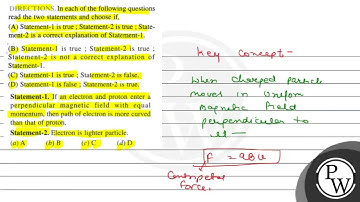 DIRECTIONS. In each of the following questions
read the two statements and choose if.
(A) Statement-1 is true ; Statement-2 is true ; State-
ment-2 is a correct explanation of Statement-1.
(B) Statement-1 is true ; Statement-2 is true ;
Statement-2 is not a correct explanation of
Statement-1.
(C) Statement-1 is true ; Statement-2 is false.
(D) Statement-1 is false ; Statement-2 is true.
Statement-1. If an electron and proton enter a
perpendicular magnetic field with equal
momentum, then path of electron is more curved
than that of proton.
Statement-2. Electron is lighter particle.
(a) A (b) B (c) C (d) D
Key Concept-
When Charged Particle
moves in Uniform
Magnetic Field
perpendicular to
it -
F = qBv
Centripetal
Force.
PW